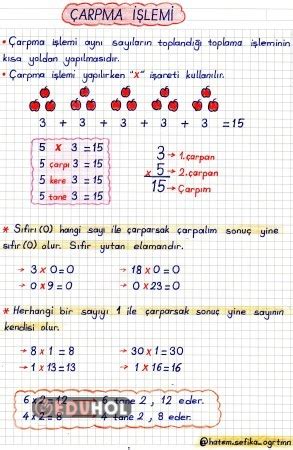 ÇARPMA İŞLEMİ
• Çarpma işlemi aynı sayıların toplandığı toplama işleminin
kısa yoldan yapılmasıdır.
• Çarpma işlemi yapılırken "x" işareti kullanılır.
3 + 3 + 3 + 3 + 3 =15
5 x 3 =15
5 çarpı 3 =15
5 kere 3 =15
5 tane 3 =15
3 → 1.çarpan
x 5 → 2.çarpan
15 → Çarpım
* Sıfırı (0) hangi sayı ile çarparsak çarpalım sonuç yine
sıfır (0) olur. Sıfır yutan elamandır.
→ 3 x 0 = 0 → 18 x 0 = 0
→ 0 x 9 = 0 → 0 x 23 = 0
* Herhangi bir sayıyı 1 ile çarparsak sonuç yine sayının
kendisi olur.
→ 8 x 1 = 8 → 30 x 1 = 30
→ 1 x 13 = 13 → 1 x 16 = 16
6 x 2 = 12 6 tane 2, 12 eder.
EDUHOL
4 x 2 = 8 4 tane 2, 8 eder.
@hatem_sefika_ogrtmn